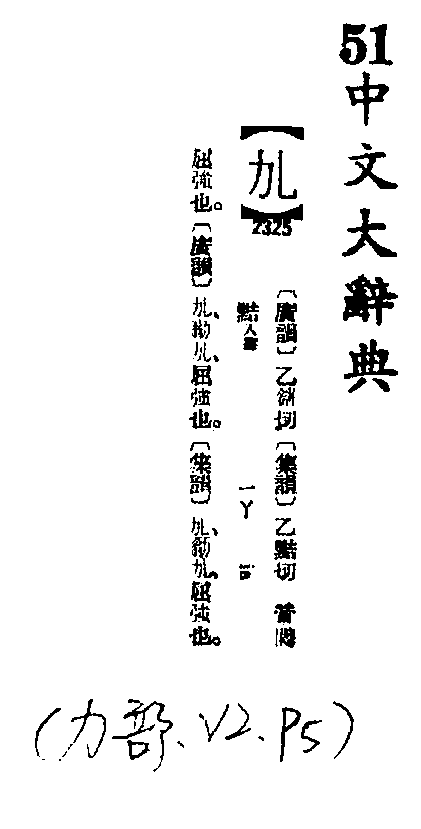 51中文大辭典
【劜】
2325
〔廣韻〕乙鎋切〔集韻〕乙黠切 音
黠入聲 ㄧㄚ ia
屈強也。〔廣韻〕劜、勜劜、屈強也。〔集韻〕劜、勜劜、屈強也。
(力部、V2、P5)